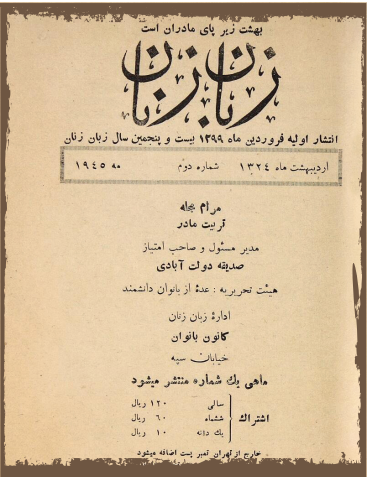 بهشت زیر پای مادران است
زبان زنان
انتشار اولیه فروردین ماه ۱۲۹۹ بیست و پنجمین سال زبان زنان
اردیبهشت ماه ۱۳۲۴ شماره دوّم مه ۱۹٤٥
مرام مجله
تربیت مادر
مدیر مسئول و صاحب امتیاز
صدیقه دولت آبادی
هیئت تحریریه : عدهٔ از بانوان دانشمند
ادارهٔ زبان زنان
کانون بانوان
خیابان سپه
ماهی یك شماره منتشر میشود
اشتراك
سالی ۱۲۰ ریال
ششماه ٦۰ ریال
یك دانه ۱۰ ریال
خارج از تهران تمبر پست اضافه میشود